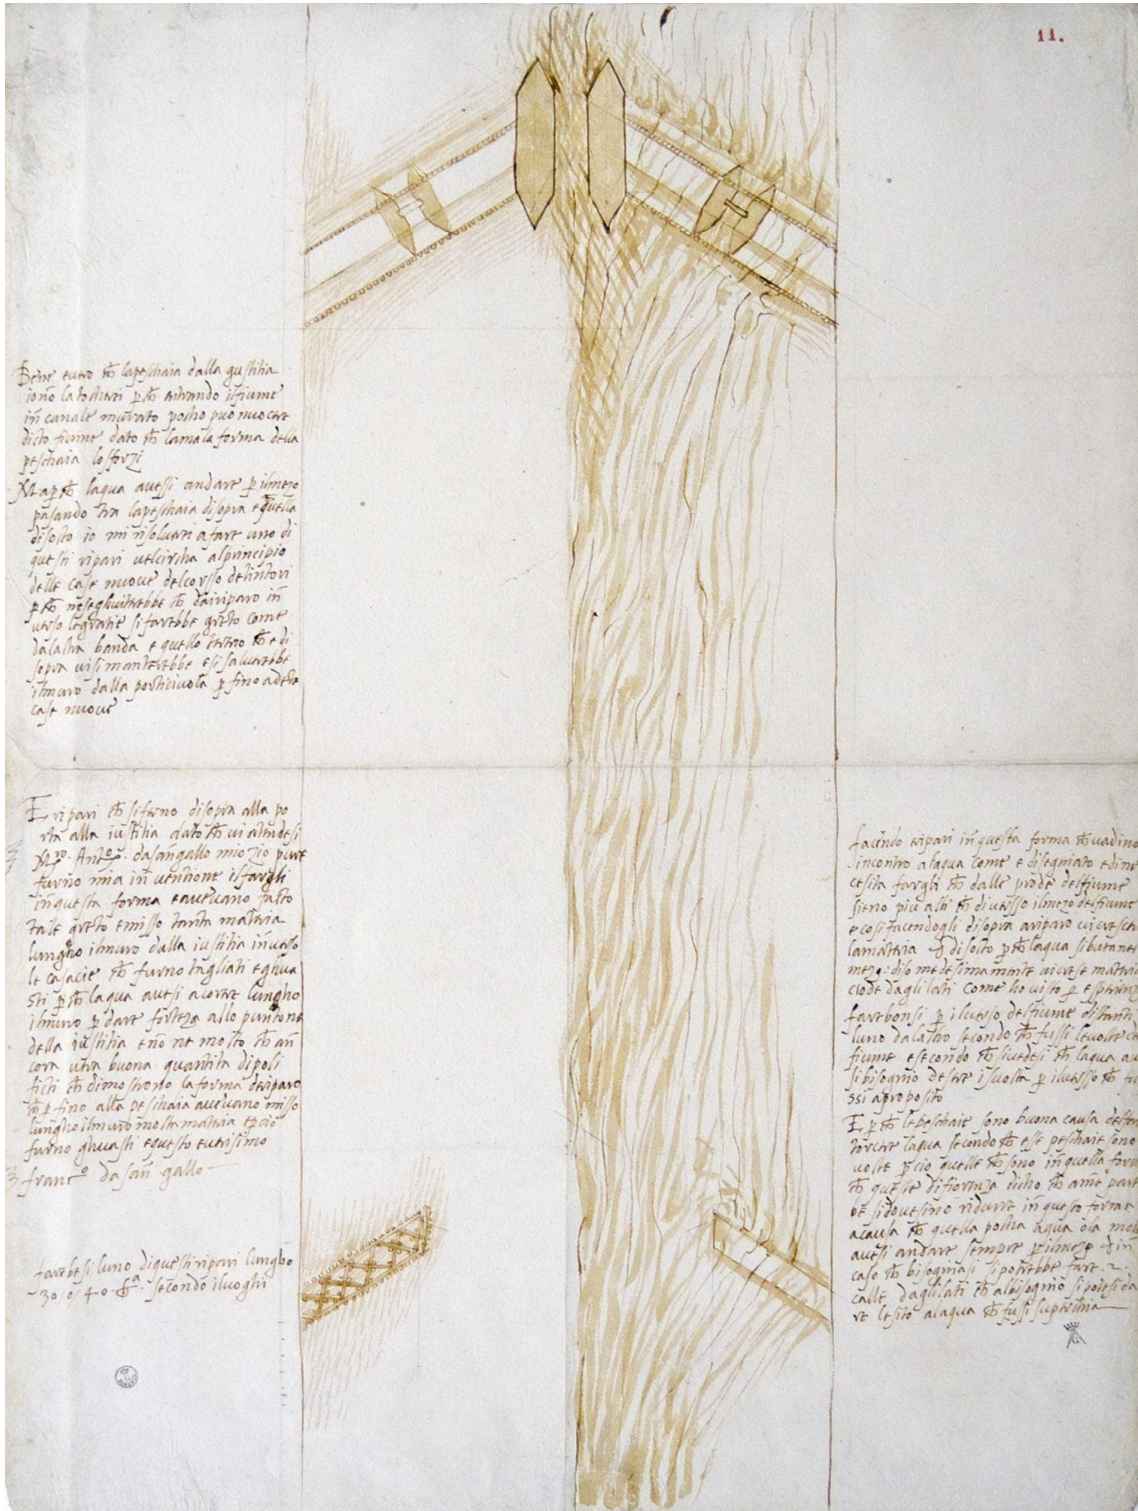 11.
Bene e vero che la peschaia dalla gustitia
io no la tocherei p che entrando ilfiume
in canale murato pocho può nuocere
dicto fiume dato che la mala forma della
peschaia lo sforzi
Ma p che laqua avessi andare p ilmezo
pasando tra lapeschaia disopra e quella
disoto io mi risolverei afare uno di
questi ripari vel circha alprincipio
delle case nuove delcorsso detintori
p che neseghuiterebbe che dairiparo in
verso legratie sifarebbe greto come
dalaltra banda e quello tereno che e di
sopra visi manterebbe e si salverebbe
ilmuro dalla porticciuola p fino adete
case nuove
E ripari che siferno disopra alla po
rta alla iustitia dato che vi atendesi
Mro. Anto. dasangallo mio zio pure
furno mia inventione ifargli
in questa forma e avevano fatto
tale greto e misso tanta materia
lungho ilmuro dalla iustitia inverso
le casacie che furno tagliati e ghua
sti p che laqua avesi acorere lungho
ilmuro p dare forteza allo puntone
della iustitia e no ne molto che an
cora vera buona quantita dipali
ficti che dimostrono laforma deriparo
che p fino alla peschaia avevano misso
lungho ilmuro molta materia e pcio
furno ghuasti e questo e verisimo
franco da san gallo
farebesi luno diquesti ripari lungho
30 o 40 ba secondo iluoghi
facendo eripari in questa forma che vadino
incontro alaqua come e disegniato e dine
cesita fargli che dalle prode delfiume
sieno piu alti che diverso ilmezo delfiume
e cosi facendogli disopra ariparo vi cresce
lamateria & disoto p che laqua sibuta nel
mezo: diso medesimamente vi crese materia
cioe dagli lati come ho visto p esperienz
farebonsi p iluerso delfiume distanti
luno dalaltro secondo che fussi levolte de
fiume e secondo che sivedesi che laqua av
si bisognio desere isvolta p iluersso che fu
ssi aproposito
E p che lepeschaie sono buona causa desto
torcere laqua secondo che esse peschaie sono
volte pcio quelle che sono in quella form
che queste difiorenza dicho che ame pare
be sidovesino ridurre in questo forma
acausa che quella pocha aqua o la mol
avesi andare sempre p ilmezo & in
caso che bisogniasi si potrebbe fare .2.
calle dagli lati che albisognio si potesi da
re lesito alaqua che fussi superchia